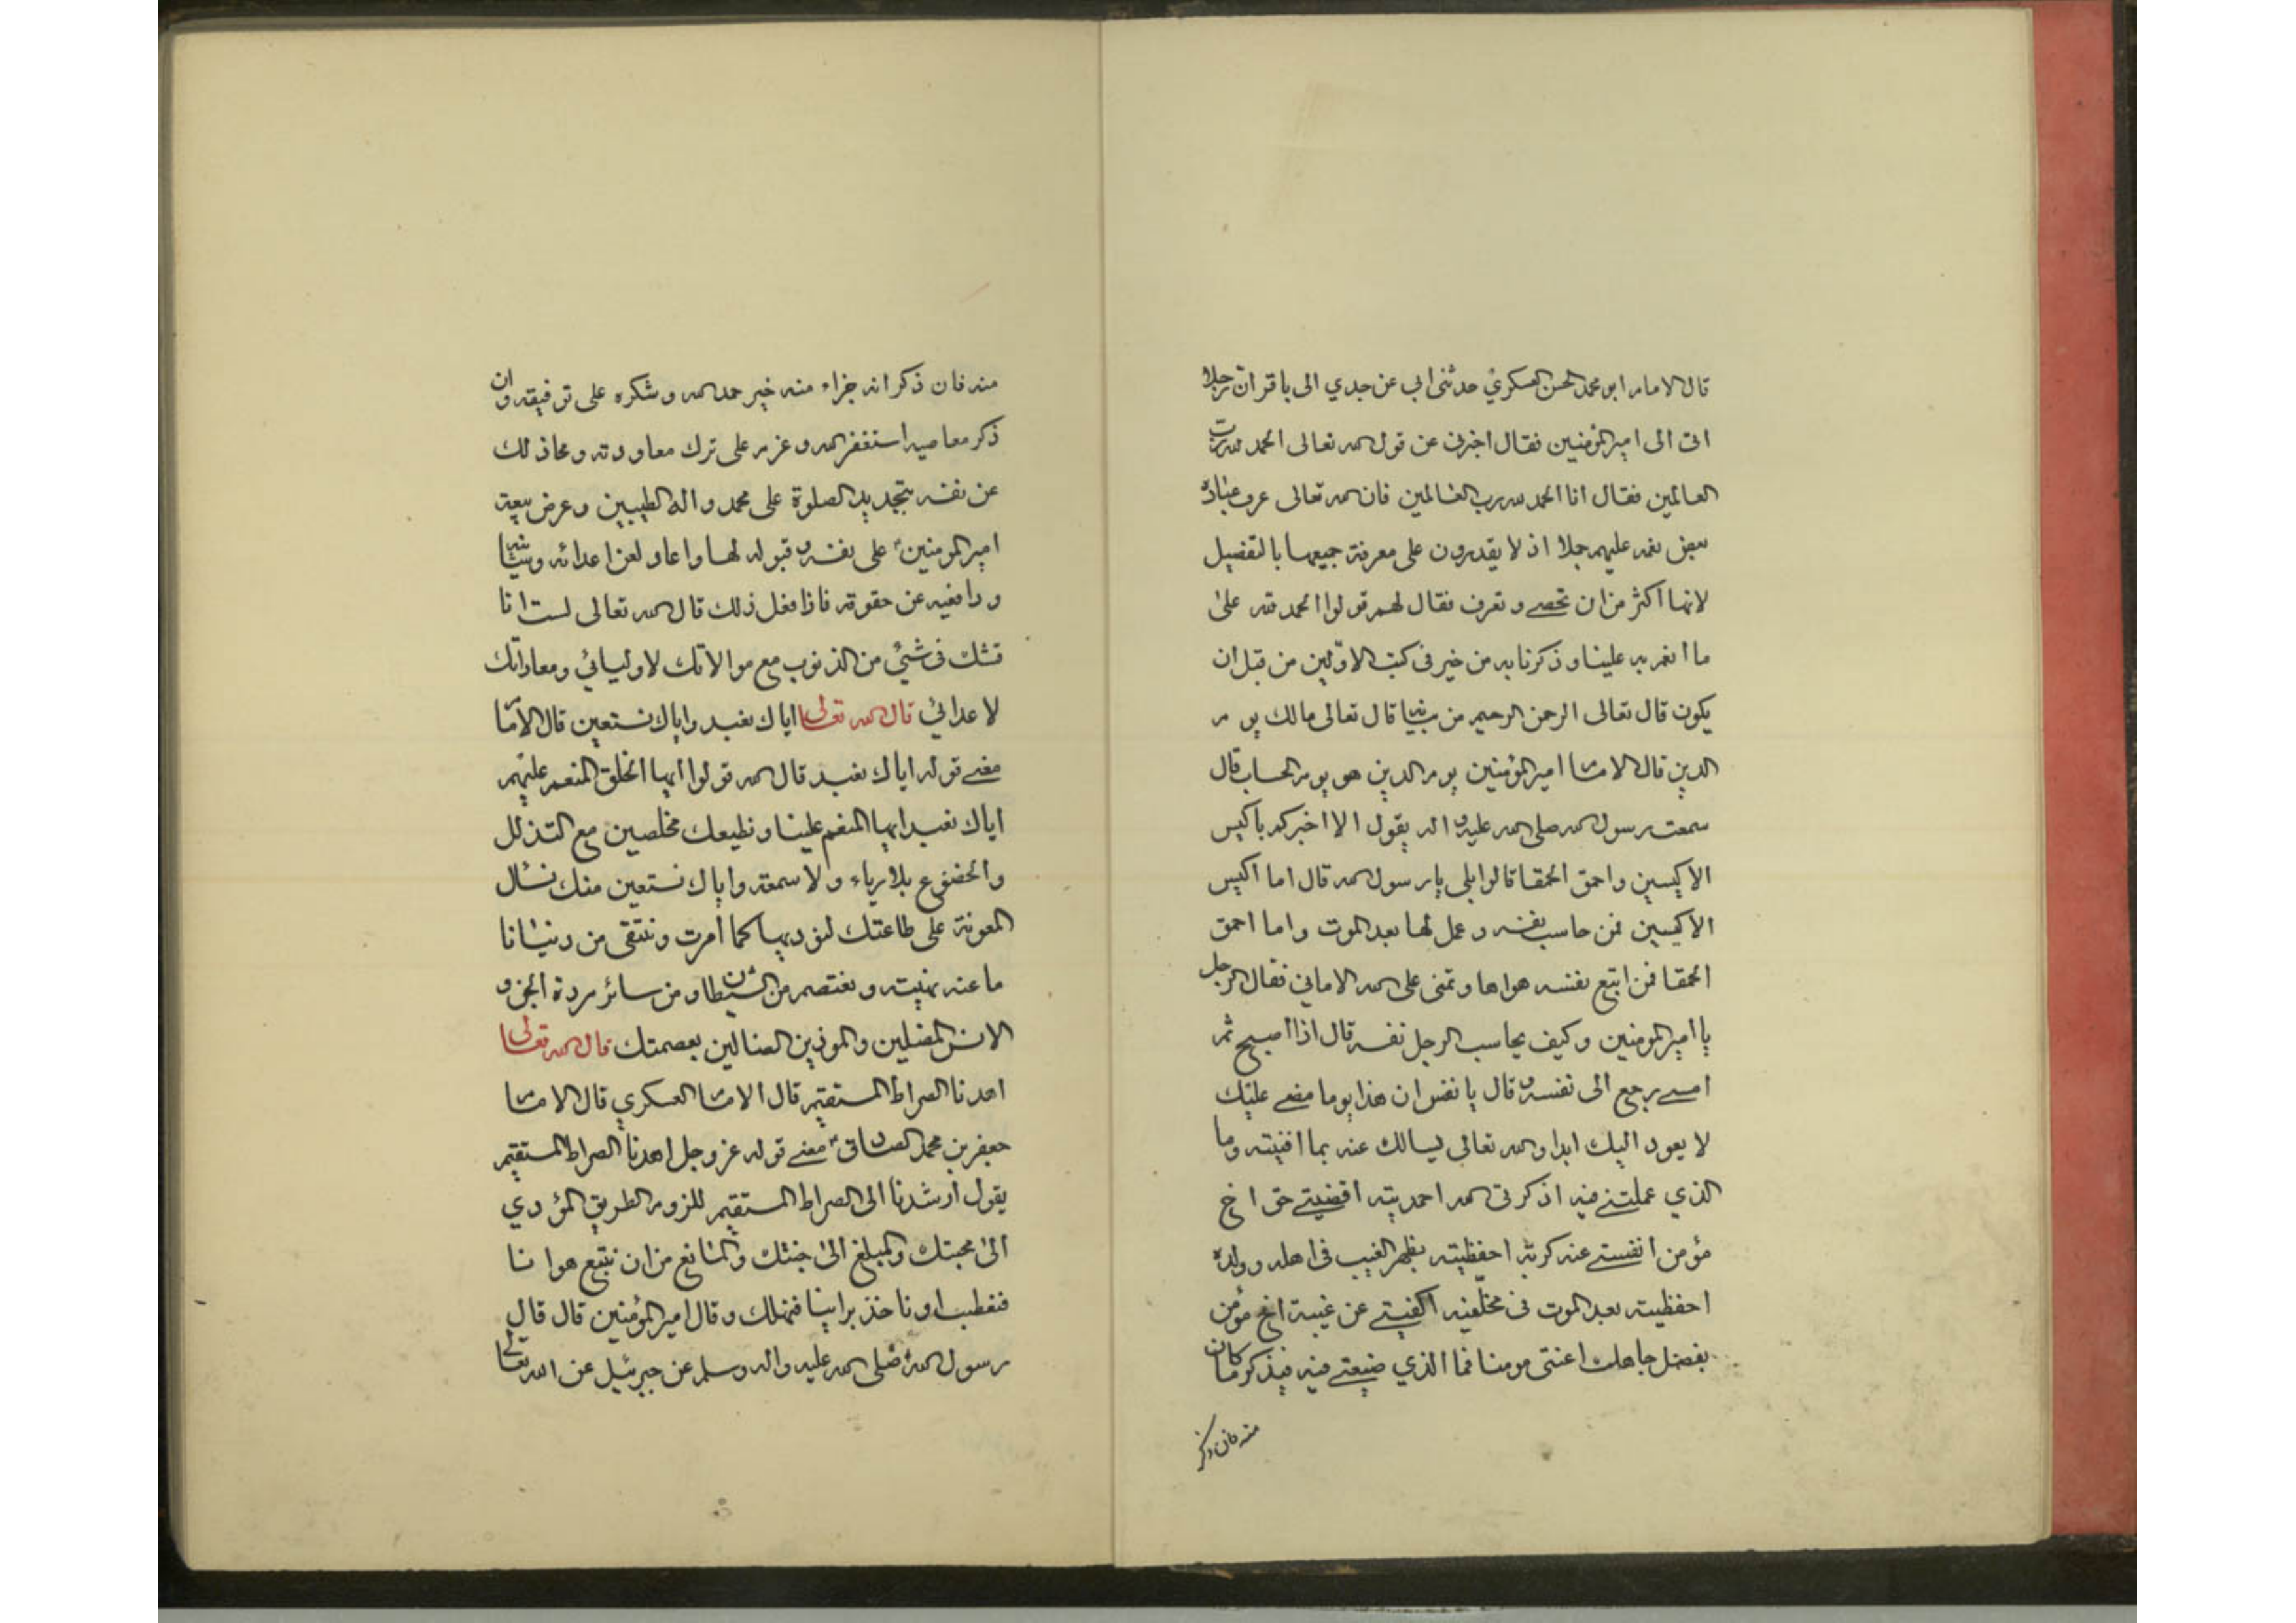 قال الامام ابو محمد الحسن العسكري حدثنى ابى عن جدي الى باقر ان رجلا
اتى الى امير المؤمنين فقال اخبرنى عن قول الله تعالى الحمد لله رب
العالمين فقال انا الحمد لله رب العالمين فان الله تعالى عرف عباده
بعض نعمه عليهم جملا اذ لا يقدرون على معرفة جميعها بالتفصيل
لانها اكثر من ان تحصى و تعرف فقال لهم قولوا الحمد لله على
ما انعم به علينا و ذكرنا به من خير فى كتب الاولين من قبل ان
يكون قال تعالى الرحمن الرحيم من قال تعالى مالك يوم
الدين قال الامام امير المؤمنين يوم الدين هو يوم الحساب قال
سمعت رسول الله صلى الله عليه و اله يقول الا اخبركم باكيس
الاكيسين و احمق الحمقا قالوا بلى يا رسول الله قال اما اكيس
الاكيسين فمن حاسب نفسه و عمل لها بعد الموت و اما احمق
الحمقا فمن اتبع نفسه هواها و تمنى على الله الامانى فقال الرجل
يا امير المومنين و كيف يحاسب الرجل نفسه قال اذا اصبح ثم
امسى رجع الى نفسه و قال يا نفس ان هذا يوما مضى عليك
لا يعود اليك ابدا و الله تعالى يسالك عنه بما افنيته و ما
الذي عملتى فيه اذكرتى الله احمديته اقضيتى حق اخ
مؤمن انفستى عنه كربة احفظيته بظهر الغيب فى اهله و ولده
احفظيته بعد الموت فى مخلّفيه اكففتى عن غيبة اخ مؤمن
بفضل جاهك اعنتى مومنا فما الذي ضيعتى فيه فيذكر ما كان
منه فان ذكر
منه فان ذكر انه جزاء منه خير حمد الله و شكره على توفيقه و ان
ذكر معاصيه استغفر الله و عزم على ترك معاودته و محا ذلك
عن نفسه بتجديد الصلوة على محمد و اله الطيبين و عرض بيعة
امير المومنين على نفسه و قبوله لها و اعاد لعن اعدائه و
و دافعيه عن حقوقه فاذا فعل ذلك قال الله تعالى لست انا
قشك فى شئ من الذنوب مع موالاتك لاوليائي و معاداتك
لاعدائي قال الله تعالى اياك نعبد و اياك نستعين قال الامام
معنى قوله اياك نعبد قال الله قولوا ايها الخلق المنعم عليهم
اياك نعبد ايها المنعم علينا و نطيعك مخلصين مع التذلل
و الخضوع بلا رياء و لا سمعة و اياك نستعين منك نسئال
المعونة على طاعتك لنوديها كما امرت و نتقى من دنيانا
ما عنه نهيت و نعتصم من الشيطان و من سائر مردة الجن و
الانس المضلين و الموذين الضالين بعصمتك قال الله تعالى
اهدنا الصراط المستقيم قال الامام العسكري قال الامام
جعفر بن محمد الصادق معنى قوله عز و جل اهدنا الصراط المستقيم
يقول ارشدنا الى الصراط المستقيم للزوم الطريق المؤدي
الى محبتك و المبلغ الى جنتك و المانع من ان نتبع هوانا
فنعطب او ناخذ براينا فنهلك و قال امير المؤمنين قال قال
رسول الله صلى الله عليه و اله و سلم عن جبرئيل عن الله تعالى